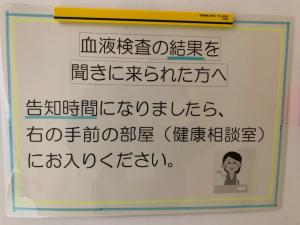 血液検査の結果を
聞きに来られた方へ
告知時間になりましたら、
右の手前の部屋（健康相談室）
にお入りください。